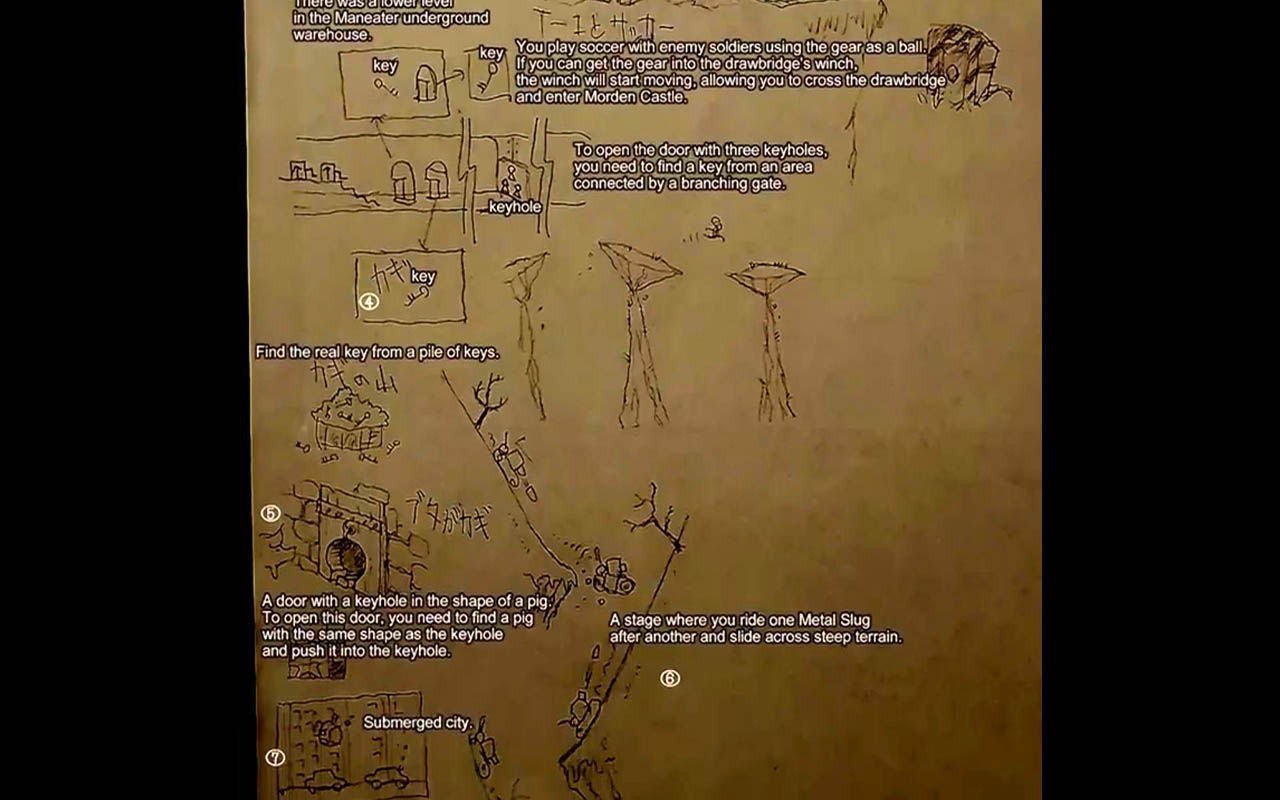 There was a lower level
in the Maneater underground
warehouse.
T-1とサッカー
You play soccer with enemy soldiers using the gear as a ball.
If you can get the gear into the drawbridge's winch,
the winch will start moving, allowing you to cross the drawbridge
and enter Morden Castle.
key
key
To open the door with three keyholes,
you need to find a key from an area
connected by a branching gate.
keyhole
カギ
key
④
Find the real key from a pile of keys.
カギの山
⑤
ブタがカギ
A door with a keyhole in the shape of a pig.
To open this door, you need to find a pig
with the same shape as the keyhole
and push it into the keyhole.
A stage where you ride one Metal Slug
after another and slide across steep terrain.
⑥
Submerged city.
⑦